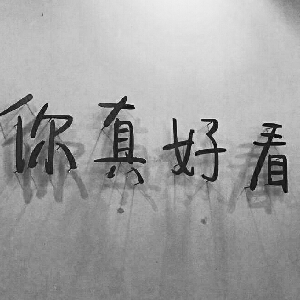 你真好看